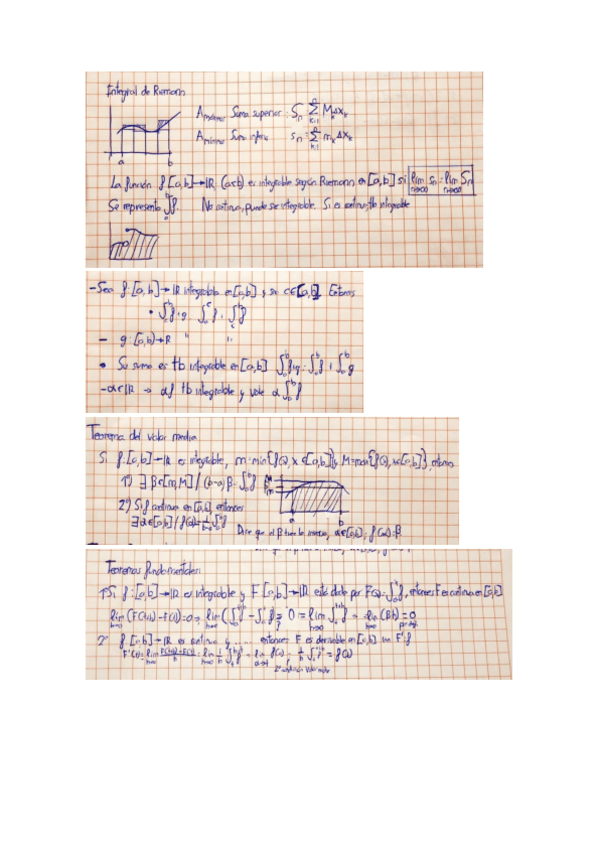 Integral de Riemann
A máximo Suma superior: Sₙ = ∑ₖ₌₁ⁿ MₖΔxₖ
A mínimo Suma inferior sₙ = ∑ₖ₌₁ⁿ mₖΔxₖ
a b
La función f: [a,b]→ℝ (a<b) es integrable según Riemann en [a,b] si lim n→∞ sₙ = lim n→∞ Sₙ
Se representa ∫ₐᵇ f. No continua, puede ser integrable. Si es continua, tb integrable
- Sea f: [a,b]→ℝ integrable en [a,b] y sea c∈[a,b]. Entonces
- g: [a,b]→ℝ " "
• Su suma es tb integrable en [a,b] ∫ₐᵇ f+g = ∫ₐᵇ f + ∫ₐᵇ g
- α∈ℝ → αf tb integrable y vale α∫ₐᵇ f
Teorema del valor medio
Si f: [a,b]→ℝ es integrable, m=min{f(x), x∈[a,b]} y M=max{f(x), x∈[a,b]}, entonces
1º) ∃ β∈[m,M] / (b-a)β = ∫ₐᵇ f
2º) Si f continua en [a,b], entonces
a b
Dice que el β tiene la inversa, α∈[a,b], f(α)=β
Teoremas fundamentales
1º Si f: [a,b]→ℝ es integrable y F: [a,b]→ℝ está dada por F(x)=∫ₐˣ f, entonces F es continua en [a,b]
2º f: [a,b]→ℝ es continua y ...... entonces F es derivable en [a,b] con F'=f